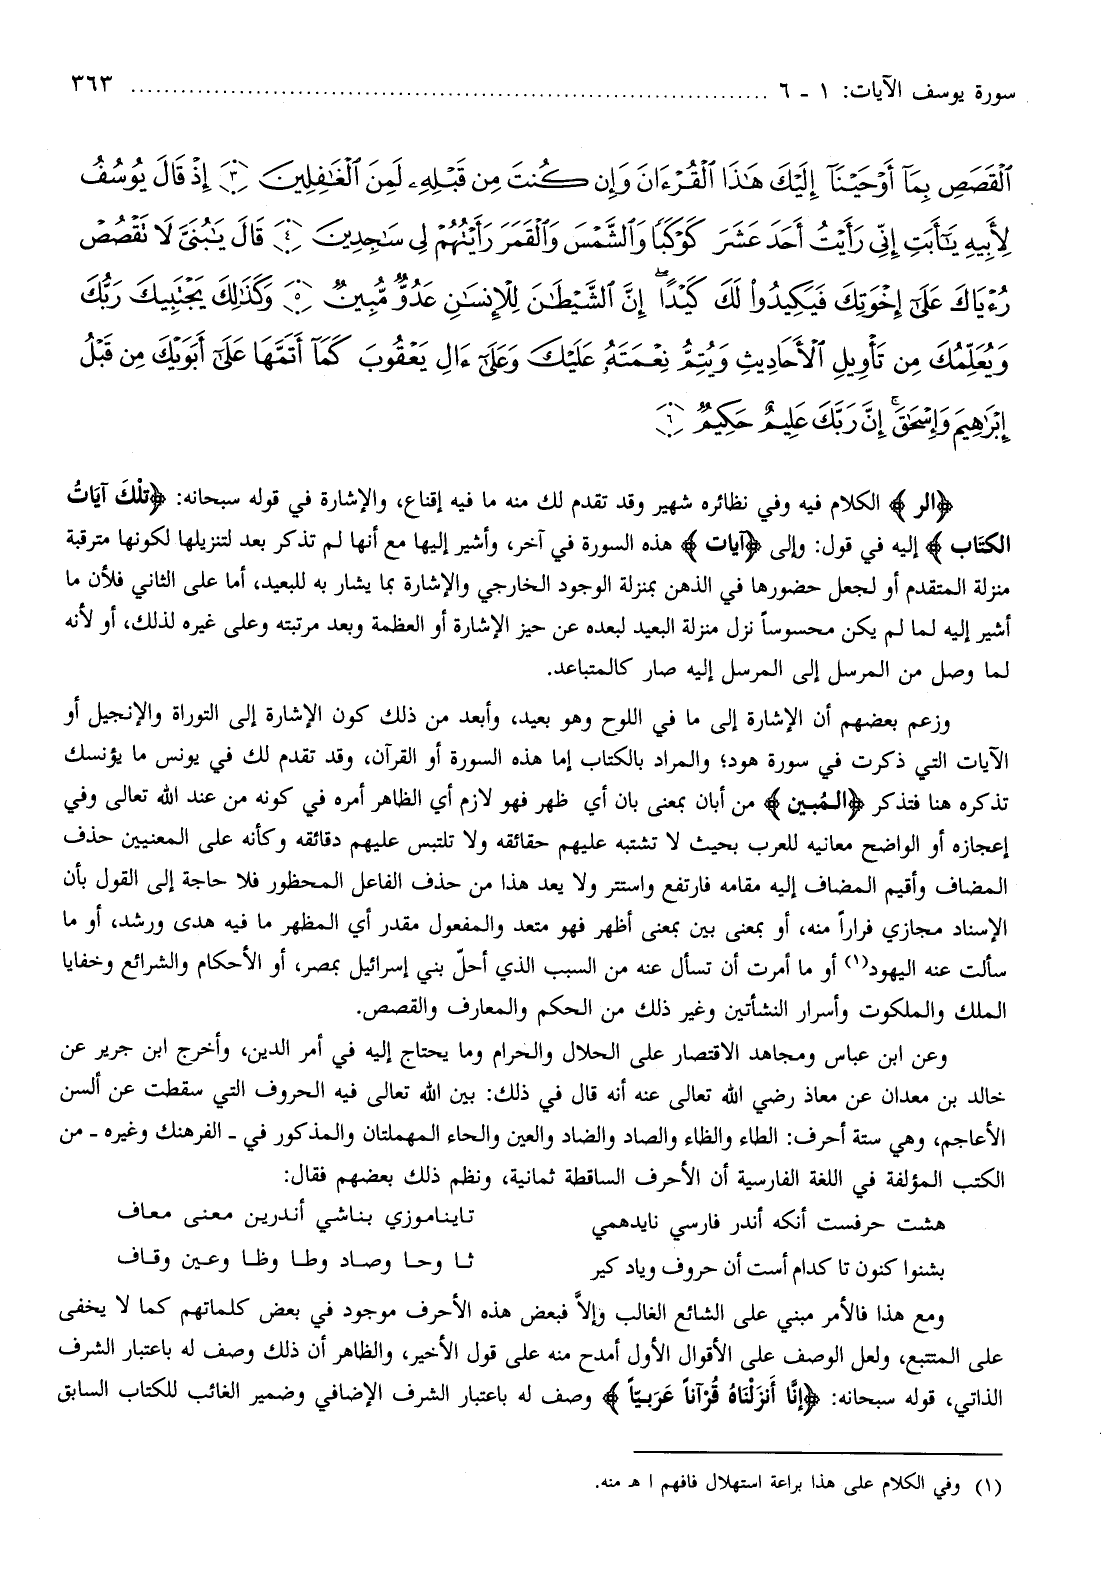 سورة يوسف الآيات: ١ - ٦ ........................................................................ ٣٦٣
ٱلْقَصَصِ بِمَآ أَوْحَيْنَآ إِلَيْكَ هَٰذَا ٱلْقُرْءَانَ وَإِن كُنتَ مِن قَبْلِهِۦ لَمِنَ ٱلْغَٰفِلِينَ ﴿٣﴾ إِذْ قَالَ يُوسُفُ
لِأَبِيهِ يَٰٓأَبَتِ إِنِّى رَأَيْتُ أَحَدَ عَشَرَ كَوْكَبًا وَٱلشَّمْسَ وَٱلْقَمَرَ رَأَيْتُهُمْ لِى سَٰجِدِينَ ﴿٤﴾ قَالَ يَٰبُنَىَّ لَا تَقْصُصْ
رُءْيَاكَ عَلَىٰٓ إِخْوَتِكَ فَيَكِيدُوا۟ لَكَ كَيْدًا ۖ إِنَّ ٱلشَّيْطَٰنَ لِلْإِنسَٰنِ عَدُوٌّ مُّبِينٌ ﴿٥﴾ وَكَذَٰلِكَ يَجْتَبِيكَ رَبُّكَ
وَيُعَلِّمُكَ مِن تَأْوِيلِ ٱلْأَحَادِيثِ وَيُتِمُّ نِعْمَتَهُۥ عَلَيْكَ وَعَلَىٰٓ ءَالِ يَعْقُوبَ كَمَآ أَتَمَّهَا عَلَىٰٓ أَبَوَيْكَ مِن قَبْلُ
إِبْرَٰهِيمَ وَإِسْحَٰقَ ۚ إِنَّ رَبَّكَ عَلِيمٌ حَكِيمٌ ﴿٦﴾
﴿الر﴾ الكلام فيه وفي نظائره شهير وقد تقدم لك منه ما فيه إقناع، والإشارة في قوله سبحانه: ﴿تلْكَ آيَاتُ
الكتَاب﴾ إليه في قول: وإلى ﴿آيات﴾ هذه السورة في آخر، وأشير إليها مع أنها لم تذكر بعد لتنزيلها لكونها مترقبة
منزلة المتقدم أو لجعل حضورها في الذهن بمنزلة الوجود الخارجي والإشارة بما يشار به للبعيد، أما على الثاني فلأن ما
أشير إليه لما لم يكن محسوساً نزل منزلة البعيد لبعده عن حيز الإشارة أو العظمة وبعد مرتبته وعلى غيره لذلك، أو لأنه
لما وصل من المرسل إلى المرسل إليه صار كالمتباعد.
وزعم بعضهم أن الإشارة إلى ما في اللوح وهو بعيد، وأبعد من ذلك كون الإشارة إلى التوراة والإنجيل أو
الآيات التي ذكرت في سورة هود؛ والمراد بالكتاب إما هذه السورة أو القرآن، وقد تقدم لك في يونس ما يؤنسك
تذكره هنا فتذكر ﴿المُبين﴾ من أبان بمعنى بان أي ظهر فهو لازم أي الظاهر أمره في كونه من عند الله تعالى وفي
إعجازه أو الواضح معانيه للعرب بحيث لا تشتبه عليهم حقائقه ولا تلتبس عليهم دقائقه وكأنه على المعنيين حذف
المضاف وأقيم المضاف إليه مقامه فارتفع واستتر ولا يعد هذا من حذف الفاعل المحظور فلا حاجة إلى القول بأن
الإسناد مجازي فراراً منه، أو بمعنى بين بمعنى أظهر فهو متعد والمفعول مقدر أي المظهر ما فيه هدى ورشد، أو ما
سألت عنه اليهود(١) أو ما أمرت أن تسأل عنه من السبب الذي أحلّ بني إسرائيل بمصر، أو الأحكام والشرائع وخفايا
الملك والملكوت وأسرار النشأتين وغير ذلك من الحكم والمعارف والقصص.
وعن ابن عباس ومجاهد الاقتصار على الحلال والحرام وما يحتاج إليه في أمر الدين، وأخرج ابن جرير عن
خالد بن معدان عن معاذ رضي الله تعالى عنه أنه قال في ذلك: بين الله تعالى فيه الحروف التي سقطت عن ألسن
الأعاجم، وهي ستة أحرف: الطاء والظاء والصاد والضاد والعين والحاء المهملتان والمذكور في - الفرهنك وغيره - من
الكتب المؤلفة في اللغة الفارسية أن الأحرف الساقطة ثمانية، ونظم ذلك بعضهم فقال:
هشت حرفست أنكه أندر فارسي نايدهمي تايناموزي بناشي أندرين معنى معاف
بشنوا كنون تا كدام أست أن حروف وياد كير ثا وحا وصاد وطا وظا وعين وقاف
ومع هذا فالأمر مبني على الشائع الغالب وإلاَّ فبعض هذه الأحرف موجود في بعض كلماتهم كما لا يخفى
على المتتبع، ولعل الوصف على الأقوال الأول أمدح منه على قول الأخير، والظاهر أن ذلك وصف له باعتبار الشرف
الذاتي، قوله سبحانه: ﴿إنَّا أَنزَلْنَاهُ قُرْآناً عَرَبيّاً﴾ وصف له باعتبار الشرف الإضافي وضمير الغائب للكتاب السابق
(١) وفي الكلام على هذا براعة استهلال فافهم ا هـ منه.